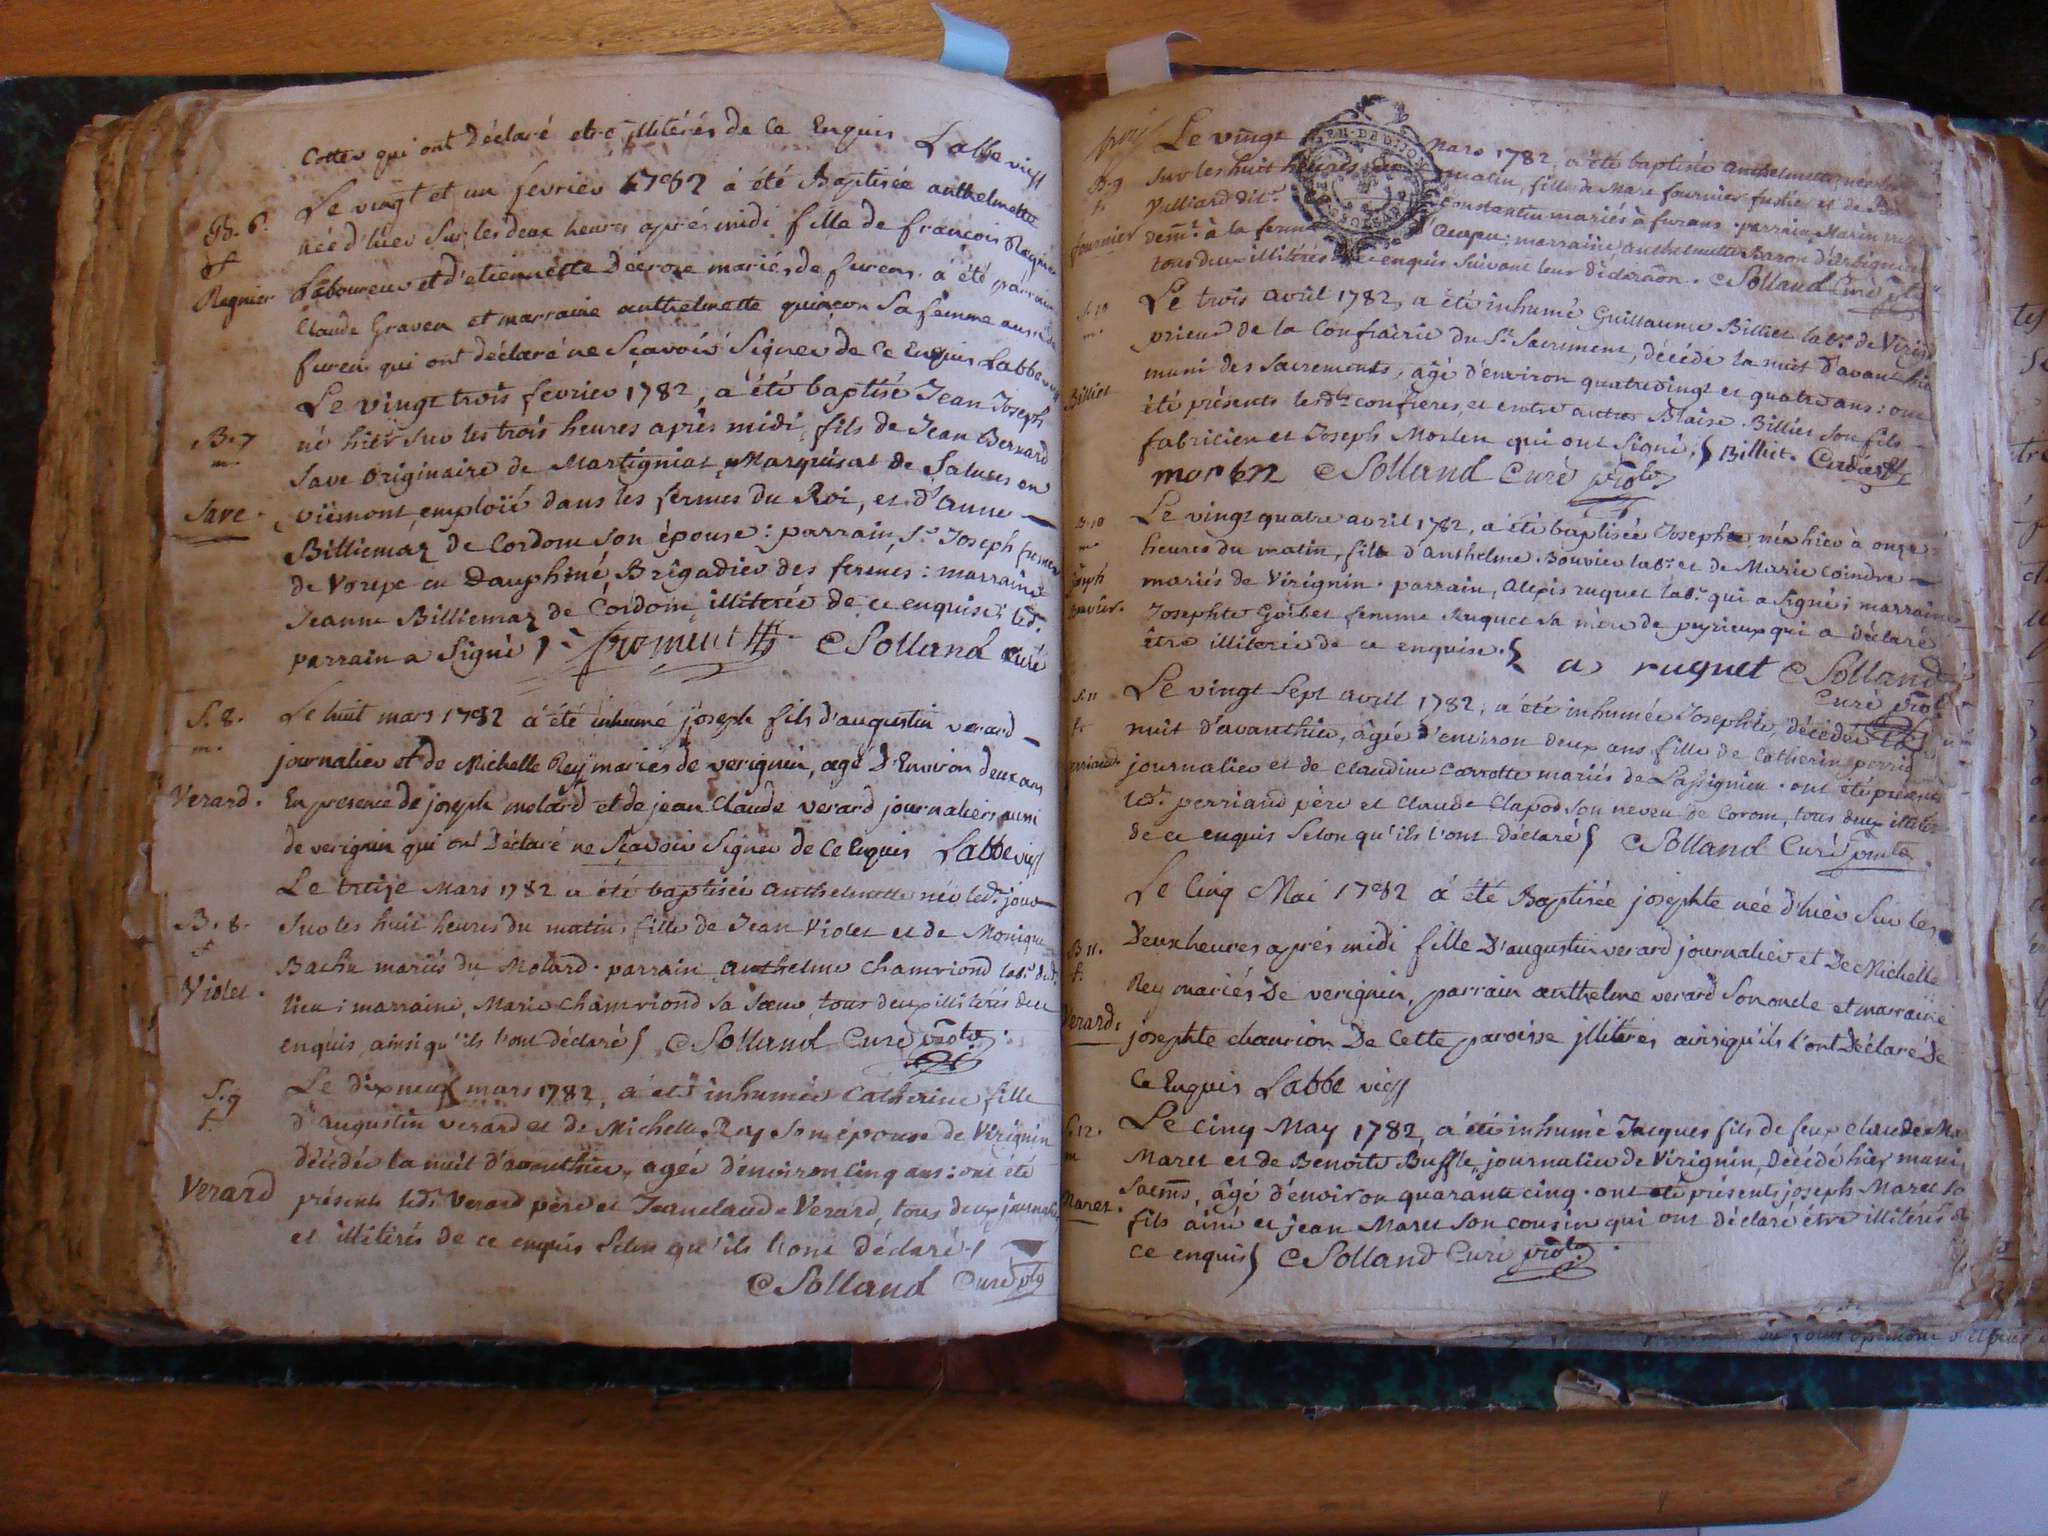 cottes qui ont Déclaré etre jllitérés de Ce Enquis Labbe vic
B. 6.
f
Regnier
Le vingt et un fevrier 1782 à été Baptisée anthelmette
née d'hier Sur les deux heures après midi fille de françois Regnier
Laboureur et d'etiennette Décroze mariés de furens. à été parrain
Claude Graven et marraine anthelmette quinçon Sa femme aussi de
furens qui ont déclaré ne Sçavoir Signer de Ce Enquis Labbe
B. 7
m.
Save.
Le vingt trois fevrier 1782, a été baptisé Jean Joseph
né hier sur les trois heures après midi, fils de Jean Bernard
Save Originaire de Martigniat Marquisat de Saluces en
piémont, emploïé dans les fermes du Roi, et d'Anne
Billiemaz de Cordon son épouse: parrain, Sr. Joseph froment
de Vorepe en Dauphiné, Brigadier des fermes: marraine
Jeanne Billiemaz de Cordon, illiterée de ce enquise; led.
parrain a Signé froment CSolland curé
S. 8.
m.
Verard.
Le huit mars 1782 à été inhumé joseph fils d'augustin verard
journalier et de Michelle Rey mariés de verignin, agé D'Environ deux ans
En presence de joseph molard et de jean Claude verard journaliers aussi
de verignin qui ont Déclaré ne Sçavoir Signer de Ce Enquis Labbe vic
B. 8.
f
Violet.
Le treize Mars 1782 a été baptisée Anthelmette née led. jour
Sur les huit heures du matin, fille de Jean Violet et de Monique
Bache mariés du Molard. parrain Anthelme Chamriond lab.r dud.
lieu; marraine, Marie Chamriond sa Sœur, tous deux illiterés de ce
enquis, ainsi qu'ils l'ont déclaré CSolland Curé
S. 9
f.
Verard
Le dixneuf mars 1782, a été inhumée Catherine fille
d'Augustin verard et de Michelle Rey Son épouse de Virignin
décédée la nuit d'avanthier, agée d'environ cinq ans: ont été
présents led. Verard père et Jeanclaude Vérard, tous deux journaliers
et illitérés de ce enquis Selon qu'ils l'ont déclaré
CSolland Curé
B. 9
f.
fournier
Le vingt Mars 1782, a été baptisée Anthelmette, née hier
Sur les huit heures du matin, fille de Marc fournier fustier et de
Constantin mariés à furans. parrain, Marin
dem.t à la ferme marraine, Anthelmette Baron d'Arbignieu
tous deux illitérés de ce enquis Suivant leur déclaraõn. CSolland Curé
S. 10
m.
Billiet
Le trois Avril 1782, a été inhumé Guillaume Billiet lab.r de Virignin
prieur de la Confrairie du St. Sacrement, décédé la nuit d'avanthier
muni des Sacrements, âgé d'environ quatrevingt et quatre ans: ont
été présents lesdts confreres, et entre autres Blaise Billiet son fils
fabricien et Joseph Morten qui ont signé. Billiet.
morten CSolland Curé
B. 10
m.
joseph
Bouvier.
Le vingt quatre avril 1782, a été baptisée Joseph né hier à onze
heures du matin, fils d'Anthelme Bouvier lab.r et de Marie Coindre
mariés de Virignin. parrain, Alexis ruquet lab.r qui a Signé; marraine
Josephte Goibet femme Ruquet sa mère de peyrieux qui a déclaré
être illiterée de ce enquise. a ruquet CSolland
Curé
S. 11
f.
perriand
Le vingt Sept avril 1782, a été inhumée Josephte, décédée la
nuit d'avanthier, âgée d'environ deux ans fille de Catherin perriand
journalier et de Claudine Carrotte mariés de Lassignieu. ont été présents
led. perriand père et Claude Clapod son neveu de Coron, tous deux illiterés
de ce enquis Selon qu'ils l'ont déclaré CSolland Curé
B 11.
f.
Verard.
Le Cinq Mai 1782 à été Baptisée josephte née d'hier Sur les
Deux heures après midi fille D'augustin verard journalier et De Michelle
Rey mariés De verignin, parrain anthelme verard Son oncle et marraine
josephte chaurion De Cette paroisse jlliterés ainsi qu'ils l'ont Déclaré De
Ce Enquis Labbe vic
S. 12.
m
Maret.
Le Cinq May 1782, a été inhumé Jacques fils de feu Claude
Maret et de Benoite Buffle, journalier de Virignin, Décédé hier muni
Sacms, âgé d'environ quarante cinq. ont été présents joseph Maret so
fils ainé et jean Maret son cousin qui ont déclaré être illiterés de
ce enquis CSolland Curé